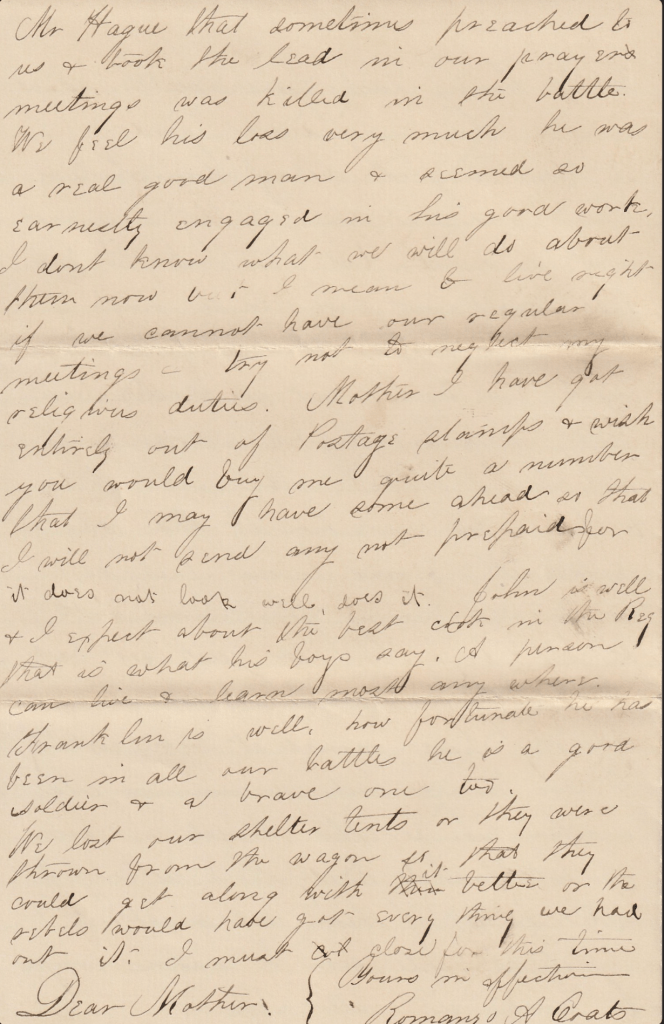 Mr Hague that sometimes preached to
us & took the lead in our prayer
meetings was killed in the battle.
We feel his loss very much he was
a real good man & seemed so
earnestly engaged in his good work.
I dont know what we will do about
them now but I mean to live right
if we cannot have our regular
meetings – try not to neglect my
religious duties. Mother I have got
entirely out of Postage stamps & wish
you would buy me quite a number
that I may have some ahead so that
I will not send any not prepaid for
it does not look well, does it. John is well
& I expect about the best cook in the Reg
that is what his boys say. A person
can live & learn most any where.
Franklin is well, how fortunate he has
been in all our battles he is a good
soldier & a brave one too.
We lost our shelter tents or they were
thrown from the wagon so that they
could get along with it better or the
rebels would have got every thing we had
out it. I must close for this time
Yours in affection
Dear Mother. Romanzo A Coats